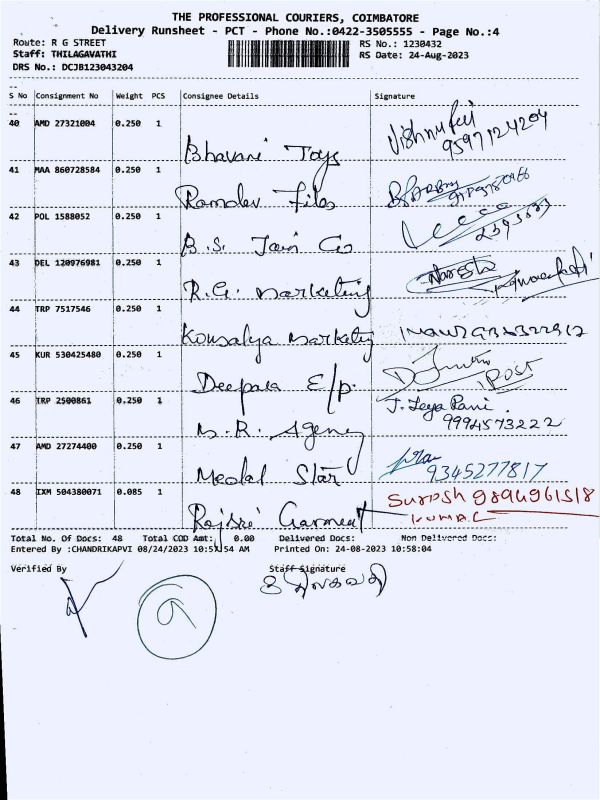 THE PROFESSIONAL COURIERS, COIMBATORE
Delivery Runsheet - PCT - Phone No.:0422-3505555 - Page No.:4
Route: R G STREET RS No.: 1230432
Staff: THILAGAVATHI RS Date: 24-Aug-2023
DRS No.: DCJB123043204
S No Consignment No Weight PCS Consignee Details Signature
40 AMD 27321004 0.250 1 Bhavani Toys
41 MAA 860728584 0.250 1 Ramdev Files
42 POL 1588052 0.250 1 B.S. Jain Co
43 DEL 120976981 0.250 1 R.G. marketing
44 TRP 7517546 0.250 1 Kousalya marketing
45 KUR 530425480 0.250 1 Deepara E/p.
46 TRP 2500861 0.250 1 M.R. Agency J. Jeya Rani. 9994573222
47 AMD 27274400 0.250 1 Medal Star 9345277817
48 IXM 504380071 0.085 1 Rajsri Garment Suresh 9894961518
Kumar
Total No. Of Docs: 48 Total COD Amt: 0.00 Delivered Docs: Non Delivered Docs:
Entered By :CHANDRIKAPVI 08/24/2023 10:57:54 AM Printed On: 24-08-2023 10:58:04
Verified By Staff Signature
9